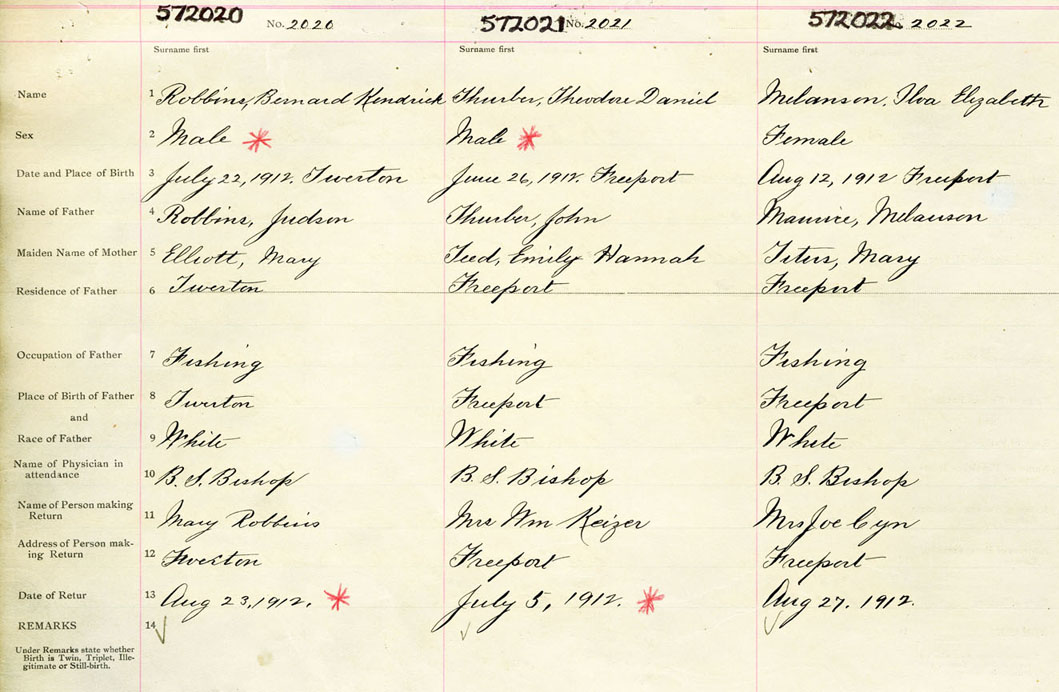 572020 No. 2020 572021 No. 2021 572022 2022
Surname first Surname first Surname first
Name 1 Robbins, Bernard Kendrick Thurber, Theodore Daniel Melanson, Ilva Elizabeth
Sex 2 Male Male Female
Date and Place of Birth 3 July 22, 1912. Tiverton June 26, 1912. Freeport Aug 12, 1912 Freeport
Name of Father 4 Robbins, Judson Thurber, John Maurice, Melanson
Maiden Name of Mother 5 Elliott, Mary Teed, Emily Hannah Titus, Mary
Residence of Father 6 Tiverton Freeport Freeport
Occupation of Father 7 Fishing Fishing Fishing
Place of Birth of Father 8 Tiverton Freeport Freeport
and
Race of Father 9 White White White
Name of Physician in
attendance 10 B. S. Bishop B. S. Bishop B. S. Bishop
Name of Person making
Return 11 Mary Robbins Mrs Wm Keizer Mrs Joe Cyn
Address of Person mak-
ing Return 12 Tiverton Freeport Freeport
Date of Retur 13 Aug 23, 1912. July 5, 1912. Aug 27. 1912.
REMARKS 14
Under Remarks state whether
Birth is Twin, Triplet, Ille-
gitimate or Still-birth.